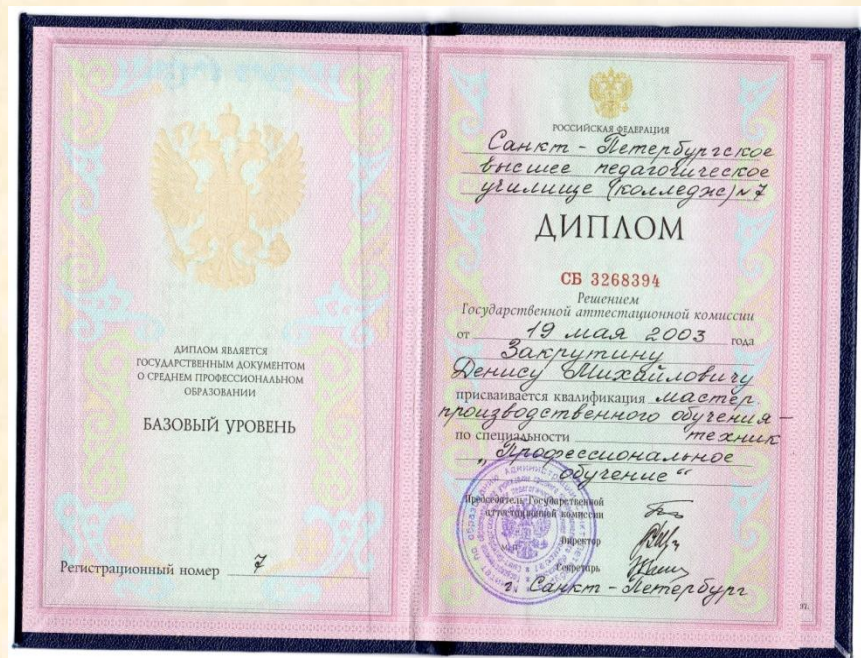 ДИПЛОМ ЯВЛЯЕТСЯ
ГОСУДАРСТВЕННЫМ ДОКУМЕНТОМ
О СРЕДНЕМ ПРОФЕССИОНАЛЬНОМ
ОБРАЗОВАНИИ
БАЗОВЫЙ УРОВЕНЬ
Регистрационный номер 7
РОССИЙСКАЯ ФЕДЕРАЦИЯ
Санкт-Петербургское
высшее педагогическое
училище (колледж) №7
ДИПЛОМ
СБ 3268394
Решением
Государственной аттестационной комиссии
от 19 мая 2003 года
Закрутину
Денису Михайловичу
присваивается квалификация мастер
производственного обучения-
по специальности техник
„Профессиональное
обучение“
Председатель Государственной
аттестационной комиссии
Директор
Секретарь
г. Санкт-Петербург